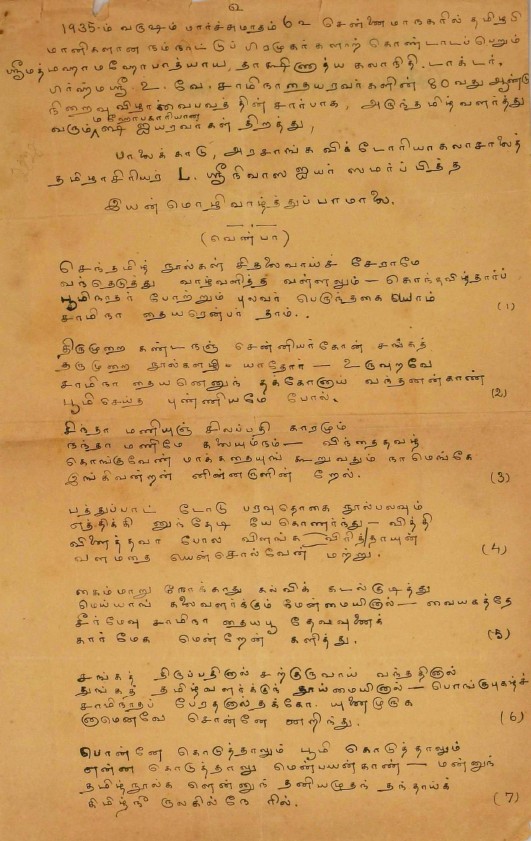 உ
1935-ம் வருஷம் மார்ச்சுமாதம் 6உ சென்னைமாநகரில் தமிழபி
மானிகளான நம்நாட்டுப் பிரமுகர்களாற் கொண்டாடப்பெறும்
ஸ்ரீமத் மஹாமஹோபாத்யாய, தாக்ஷிணாத்ய கலாநிதி, டாக்டர்.
பிரஹ்மஸ்ரீ உ. வே. சாமிநாதையரவர்களின் 80வது ஆண்டு
நிறைவுவிழா வைபவத்தின் சார்பாக, அருந்தமிழ்வளர்த்து
வரும் மஹோபகாரியான ஐயரவர்கள் திறத்து,
பாலைக்காடு, அரசாங்க விக்டோரியா கலாசாலைத்
தமிழாசிரியர் L. ஸ்ரீநிவாஸ ஐயர் ஸமர்ப்பித்த
இயன் மொழிவாழ்த்துப்பாமாலை.
(வெண்பா)
செந்தமிழ் நூல்கள் சிதலைவாய்ச் சேராமே
வந்தெடுத்து வாழ்வளித்த வள்ளலும் — கொந்தவிழ்தார்ப்
பூமிநாதர் போற்றும் புலவர் பெருந்தகை யோம்
சாமிநா தையரென்பர் தாம்.. (1)
திருமுறை கண்டநஞ் சென்னியர்கோன் சங்கத்
தருமுறை நூல்களளி யாதோர் — உருவுறவே
சாமிநா தையனெனுந் தக்கோனாய் வந்தனன்காண்
பூமிசெய்த புண்ணியமே போல். (2)
சிந்தா மணியுஞ் சிலப்பதி காரமும்
நந்தா மணிமே கலையும்நம் — விந்தைதவழ்
கொங்குவேண் மாக்கதையுங் கூறுவதும் நாமெங்கே
இங்கிவன்றன் னின்னருளின் றேல். (3)
பத்துப்பாட் டோடு பரவுதொகை நூல்பலவும்
எத்திக்கி னுந்தேடி யேகொணர்ந்து — வித்தி
விளைத்தவா போல விளங்க விரித்தாயுன்
வளமதை யென்சொல்வேன் மற்று. (4)
கைம்மாறு நோக்காது கல்விக் கடல்குடித்து
மெய்யாய் கலைவளர்க்கும் மேன்மையினால் — வையகத்தே
சீர்மேவு சாமிநா தையபூ தேவனைக்
கார் மேக மென்றேன் களித்து. (5)
சங்கத் திருப்பதினால் சற்குருவாய் வந்ததினால்
துங்கத் தமிழ்வளர்க்குந் தூய்மையினால் — பொங்குபுகழ்ச்
சாமிநாதப் பேரதனால் தக்கோ
ளாமெனவே சொன்னே னறிந்து. (6)
பொன்னே கொடுத்தாலும் பூமி கொடுத்தாலும்
என்ன கொடுத்தாலு மென்பயன்காண் — மன்னுந்
தமிழ்நூல்க ளென்னுந் தனியமுதந் தந்தாய்க்
கிமிழ்நீ ருலகில்நே ரில். (7)